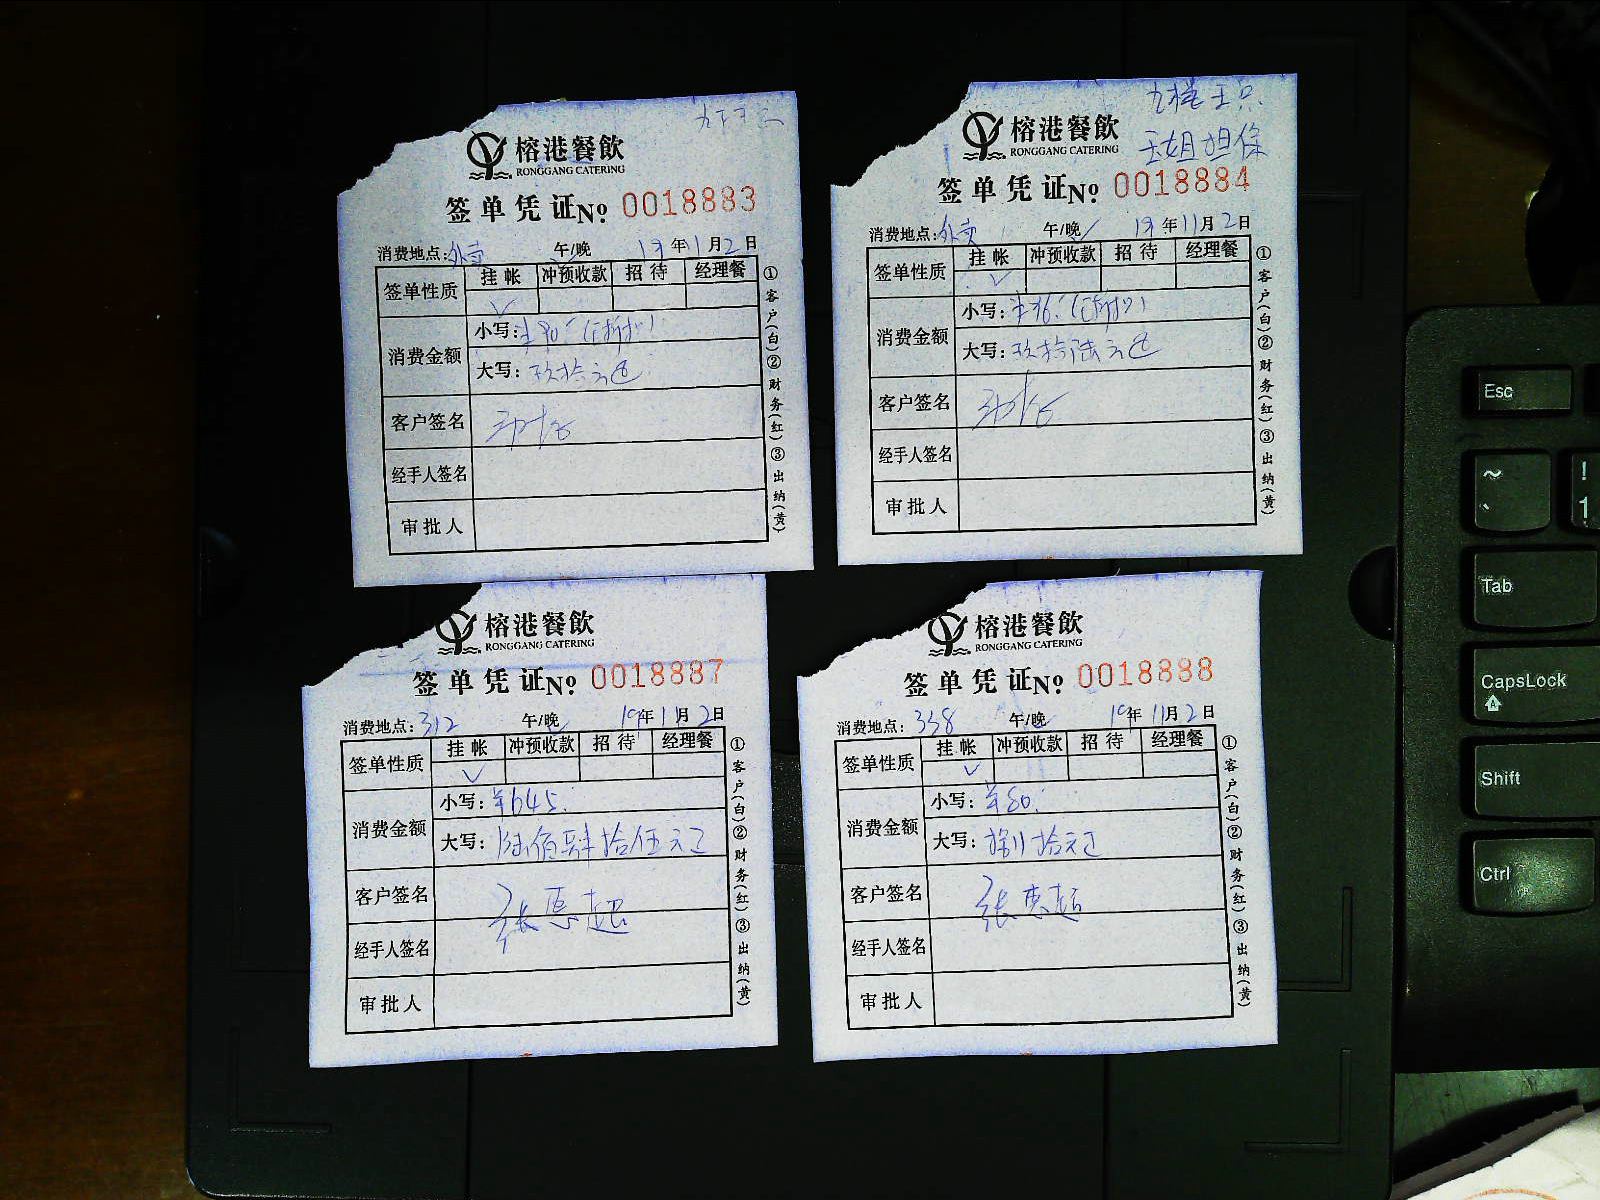 榕港餐飲
RONGGANG CATERING
签单凭证No. 0018883
消费地点:外卖 午/晚 19年11月2日
签单性质 挂帐 冲预收款 招待 经理餐
消费金额 小写:¥90.
大写:玖拾元正
客户签名
经手人签名
审批人
①客户(白)②财务(红)③出纳(黄)
玉姐担保
榕港餐飲
RONGGANG CATERING
签单凭证No. 0018884
消费地点:外卖 午/晚 19年11月2日
签单性质 挂帐 冲预收款 招待 经理餐
消费金额 小写:¥96.
大写:玖拾陆元正
客户签名
经手人签名
审批人
①客户(白)②财务(红)③出纳(黄)
榕港餐飲
RONGGANG CATERING
签单凭证No. 0018887
消费地点:312 午/晚 19年11月2日
签单性质 挂帐 冲预收款 招待 经理餐
消费金额 小写:¥645.
大写:陆佰肆拾伍元正
客户签名 张惠超
经手人签名
审批人
①客户(白)②财务(红)③出纳(黄)
榕港餐飲
RONGGANG CATERING
签单凭证No. 0018888
消费地点:338 午/晚 19年11月2日
签单性质 挂帐 冲预收款 招待 经理餐
消费金额 小写:¥80.
大写:捌拾元正
客户签名 张惠超
经手人签名
审批人
①客户(白)②财务(红)③出纳(黄)
Esc
~
`
!
1
Tab
CapsLock
A
Shift
Ctrl